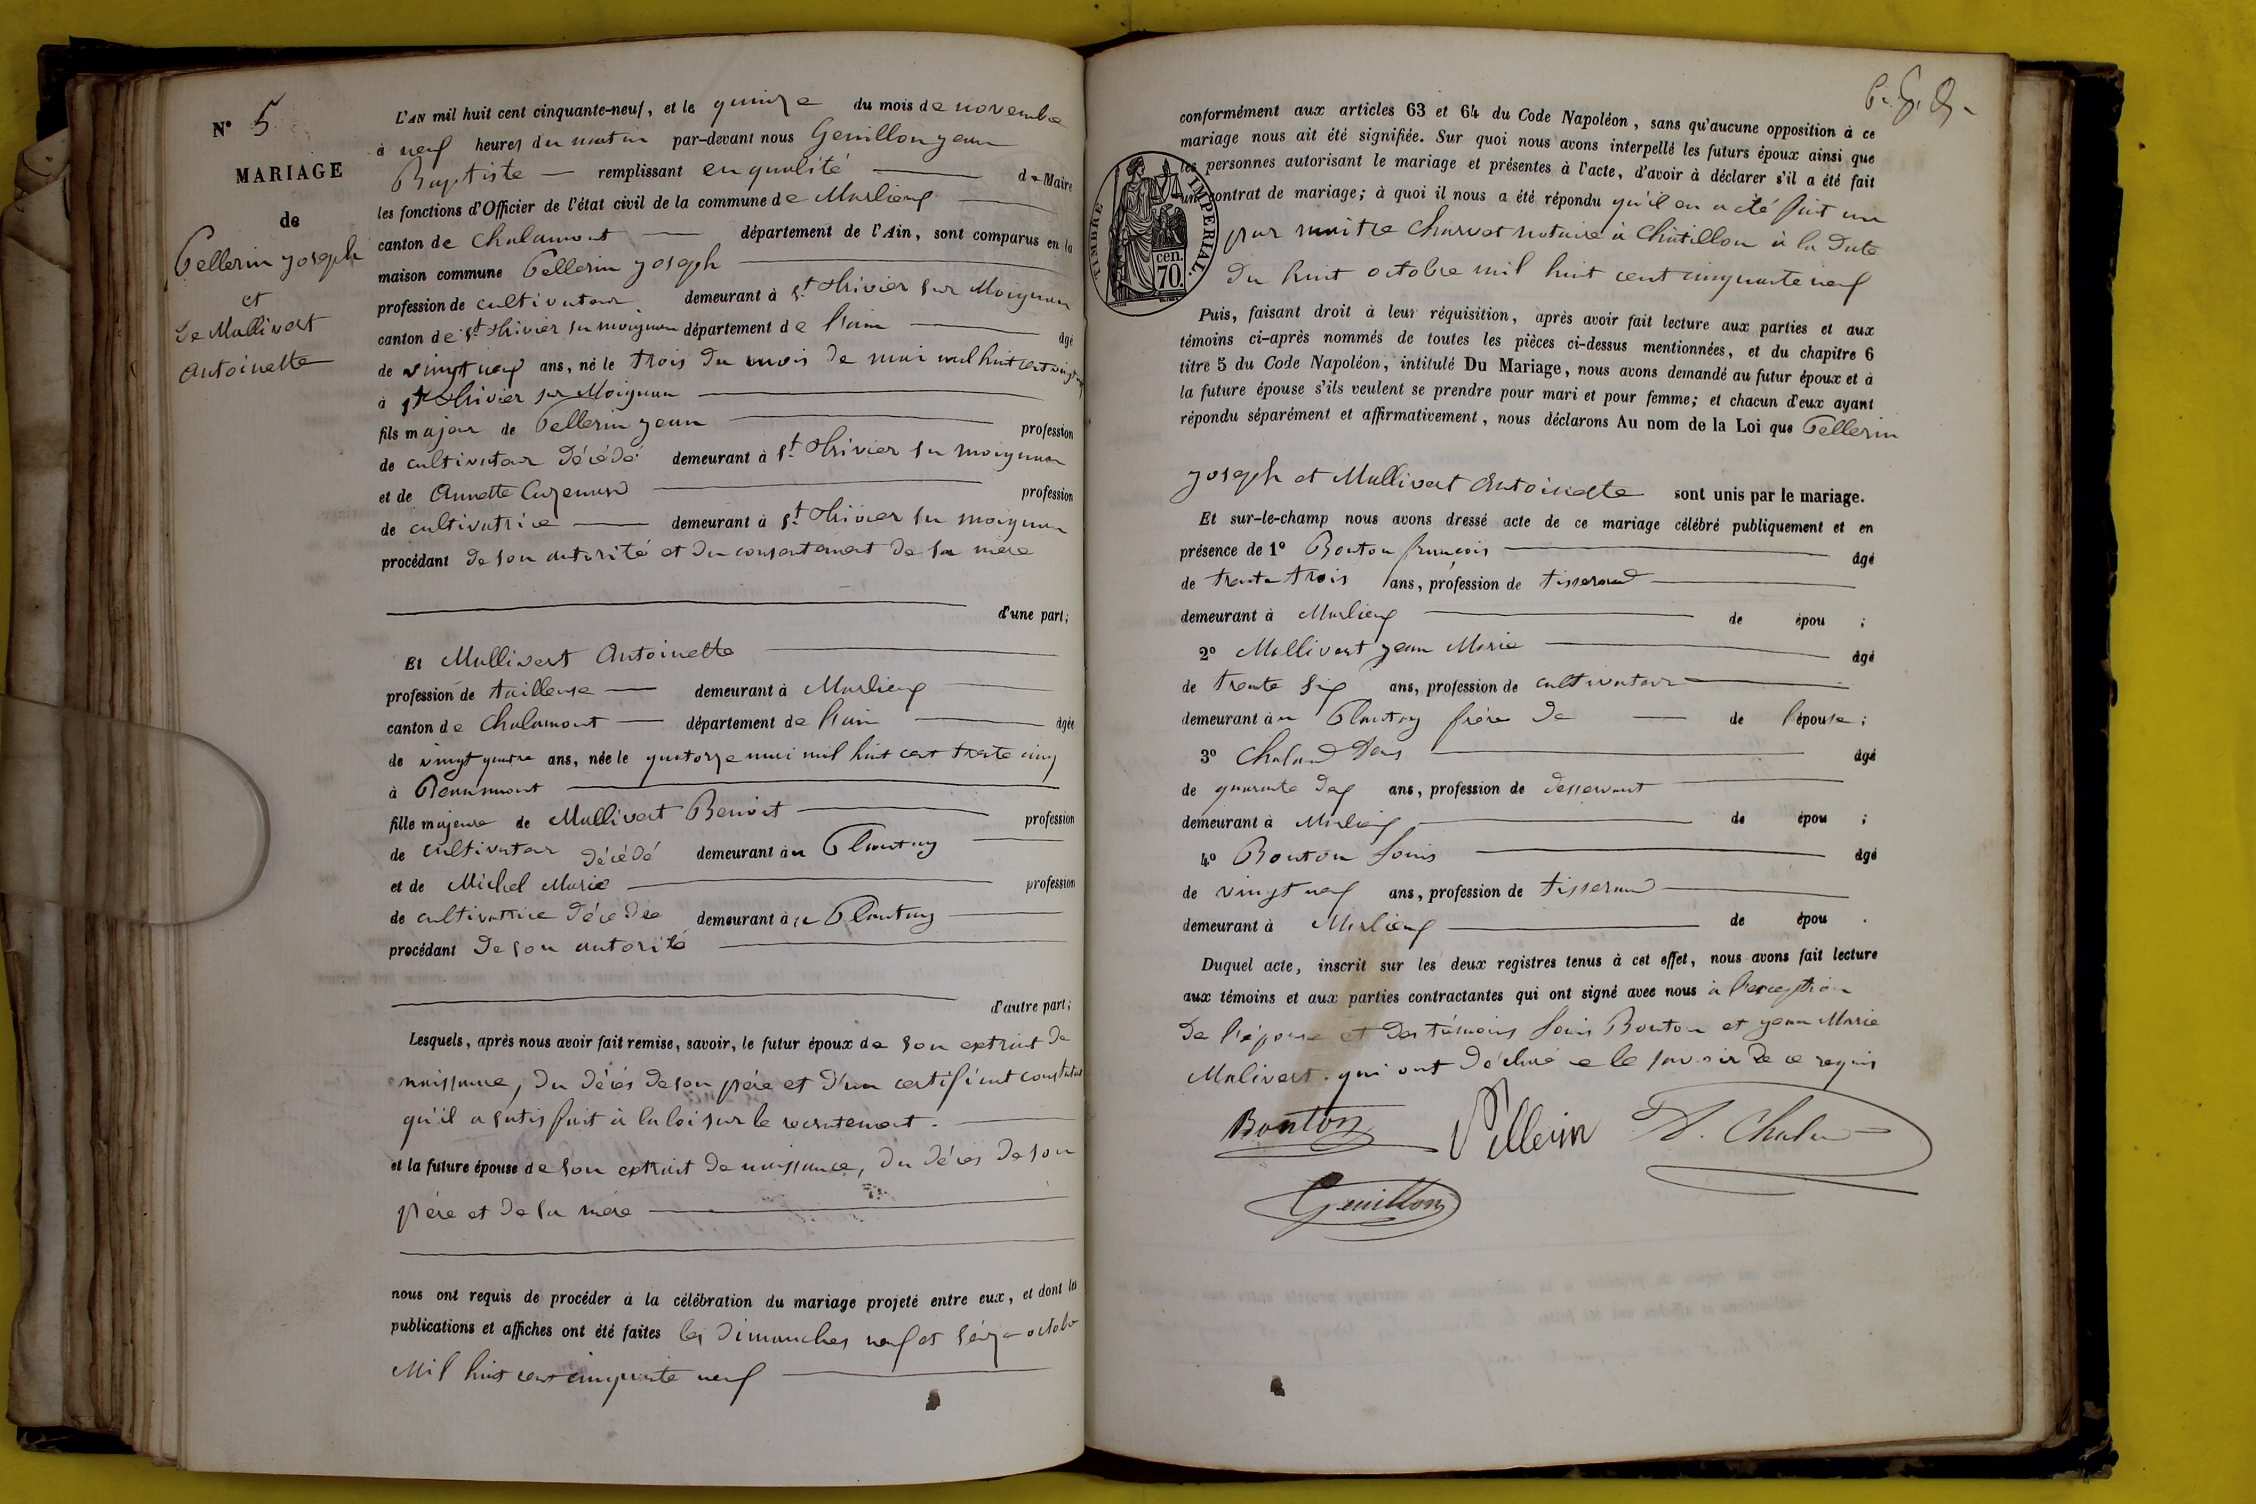 N° 5
MARIAGE
de
Pellerin joseph
et
De Mallivert
Antoinette
L'AN mil huit cent cinquante-neuf, et le quinze du mois de novembre
à neuf heures du matin par-devant nous Genillon jean
Baptiste — remplissant en qualité — de Maire
les fonctions d'Officier de l'état civil de la commune de Marlieux
canton de Chalamont — département de l'Ain, sont comparus en la
maison commune Pellerin joseph
profession de cultivateur demeurant à St thrivier sur Moignan
canton de St thrivier su moignan département de l'ain — âgé
de vingt neuf ans, né le trois du mois de mai mil huit cent vingt
à St thrivier sur Moignan
fils majeur de Pellerin jean — profession
de cultivateur décédé demeurant à St thrivier su moignan
et de Annette — profession
de cultivatrice — demeurant à St thrivier su moignan
procédant de son autorité et du consentement de sa mère
d'une part;
Et Mallivert Antoinette
profession de tailleuse — demeurant à Marlieux
canton de Chalamont — département de l'ain — âgée
de vingt quatre ans, née le quatorze mai mil huit cent trente cinq
à
fille majeure de Mallivert Benoit — profession
de cultivateur décédé demeurant au Plantay
et de Michel Marie — profession
de cultivatrice décédée demeurant au Plantay
procédant de son autorité
d'autre part;
Lesquels, après nous avoir fait remise, savoir, le futur époux de son extrait de
naissance, du décès de son père et d'un certificat constatant
qu'il a satisfait à la loi sur le recrutement.
et la future épouse de son extrait de naissance, du décès de son
père et de sa mère
nous ont requis de procéder à la célébration du mariage projeté entre eux, et dont les
publications et affiches ont été faites les dimanches neuf et seize octobre
Mil huit cent cinquante neuf
conformément aux articles 63 et 64 du Code Napoléon, sans qu'aucune opposition à ce
mariage nous ait été signifiée. Sur quoi nous avons interpellé les futurs époux ainsi que
les personnes autorisant le mariage et présentes à l'acte, d'avoir à déclarer s'il a été fait
un contrat de mariage; à quoi il nous a été répondu qu'il en a été fait un
par maitre Charvet notaire à Chatillon à la date
du huit octobre mil huit cent cinquante neuf
TIMBRE IMPERIAL.
70. cen.
Puis, faisant droit à leur réquisition, après avoir fait lecture aux parties et aux
témoins ci-après nommés de toutes les pièces ci-dessus mentionnées, et du chapitre 6
titre 5 du Code Napoléon, intitulé Du Mariage, nous avons demandé au futur époux et à
la future épouse s'ils veulent se prendre pour mari et pour femme; et chacun d'eux ayant
répondu séparément et affirmativement, nous déclarons Au nom de la Loi que Pellerin
joseph et Mallivert Antoinette sont unis par le mariage.
Et sur-le-champ nous avons dressé acte de ce mariage célébré publiquement et en
présence de 1° Bouton françois — âgé
de trente trois ans, profession de tisserand
demeurant à Marlieux — de épou ;
2° Mallivert jean Marie — âgé
de trente six ans, profession de cultivateur
demeurant au Plantay frère de — de l'épouse;
3° Chaland — âgé
de quarante deux ans, profession de desservant
demeurant à Marlieux — de épou ;
4° Bouton Louis — âgé
de vingt neuf ans, profession de tisserand
demeurant à Marlieux — de épou .
Duquel acte, inscrit sur les deux registres tenus à cet effet, nous avons fait lecture
aux témoins et aux parties contractantes qui ont signé avec nous à l'exception
de l'épouse et des témoins Louis Bouton et jean Marie
Malivert. qui ont déclaré ne le savoir de ce requis
Bouton Pellerin
Genillon